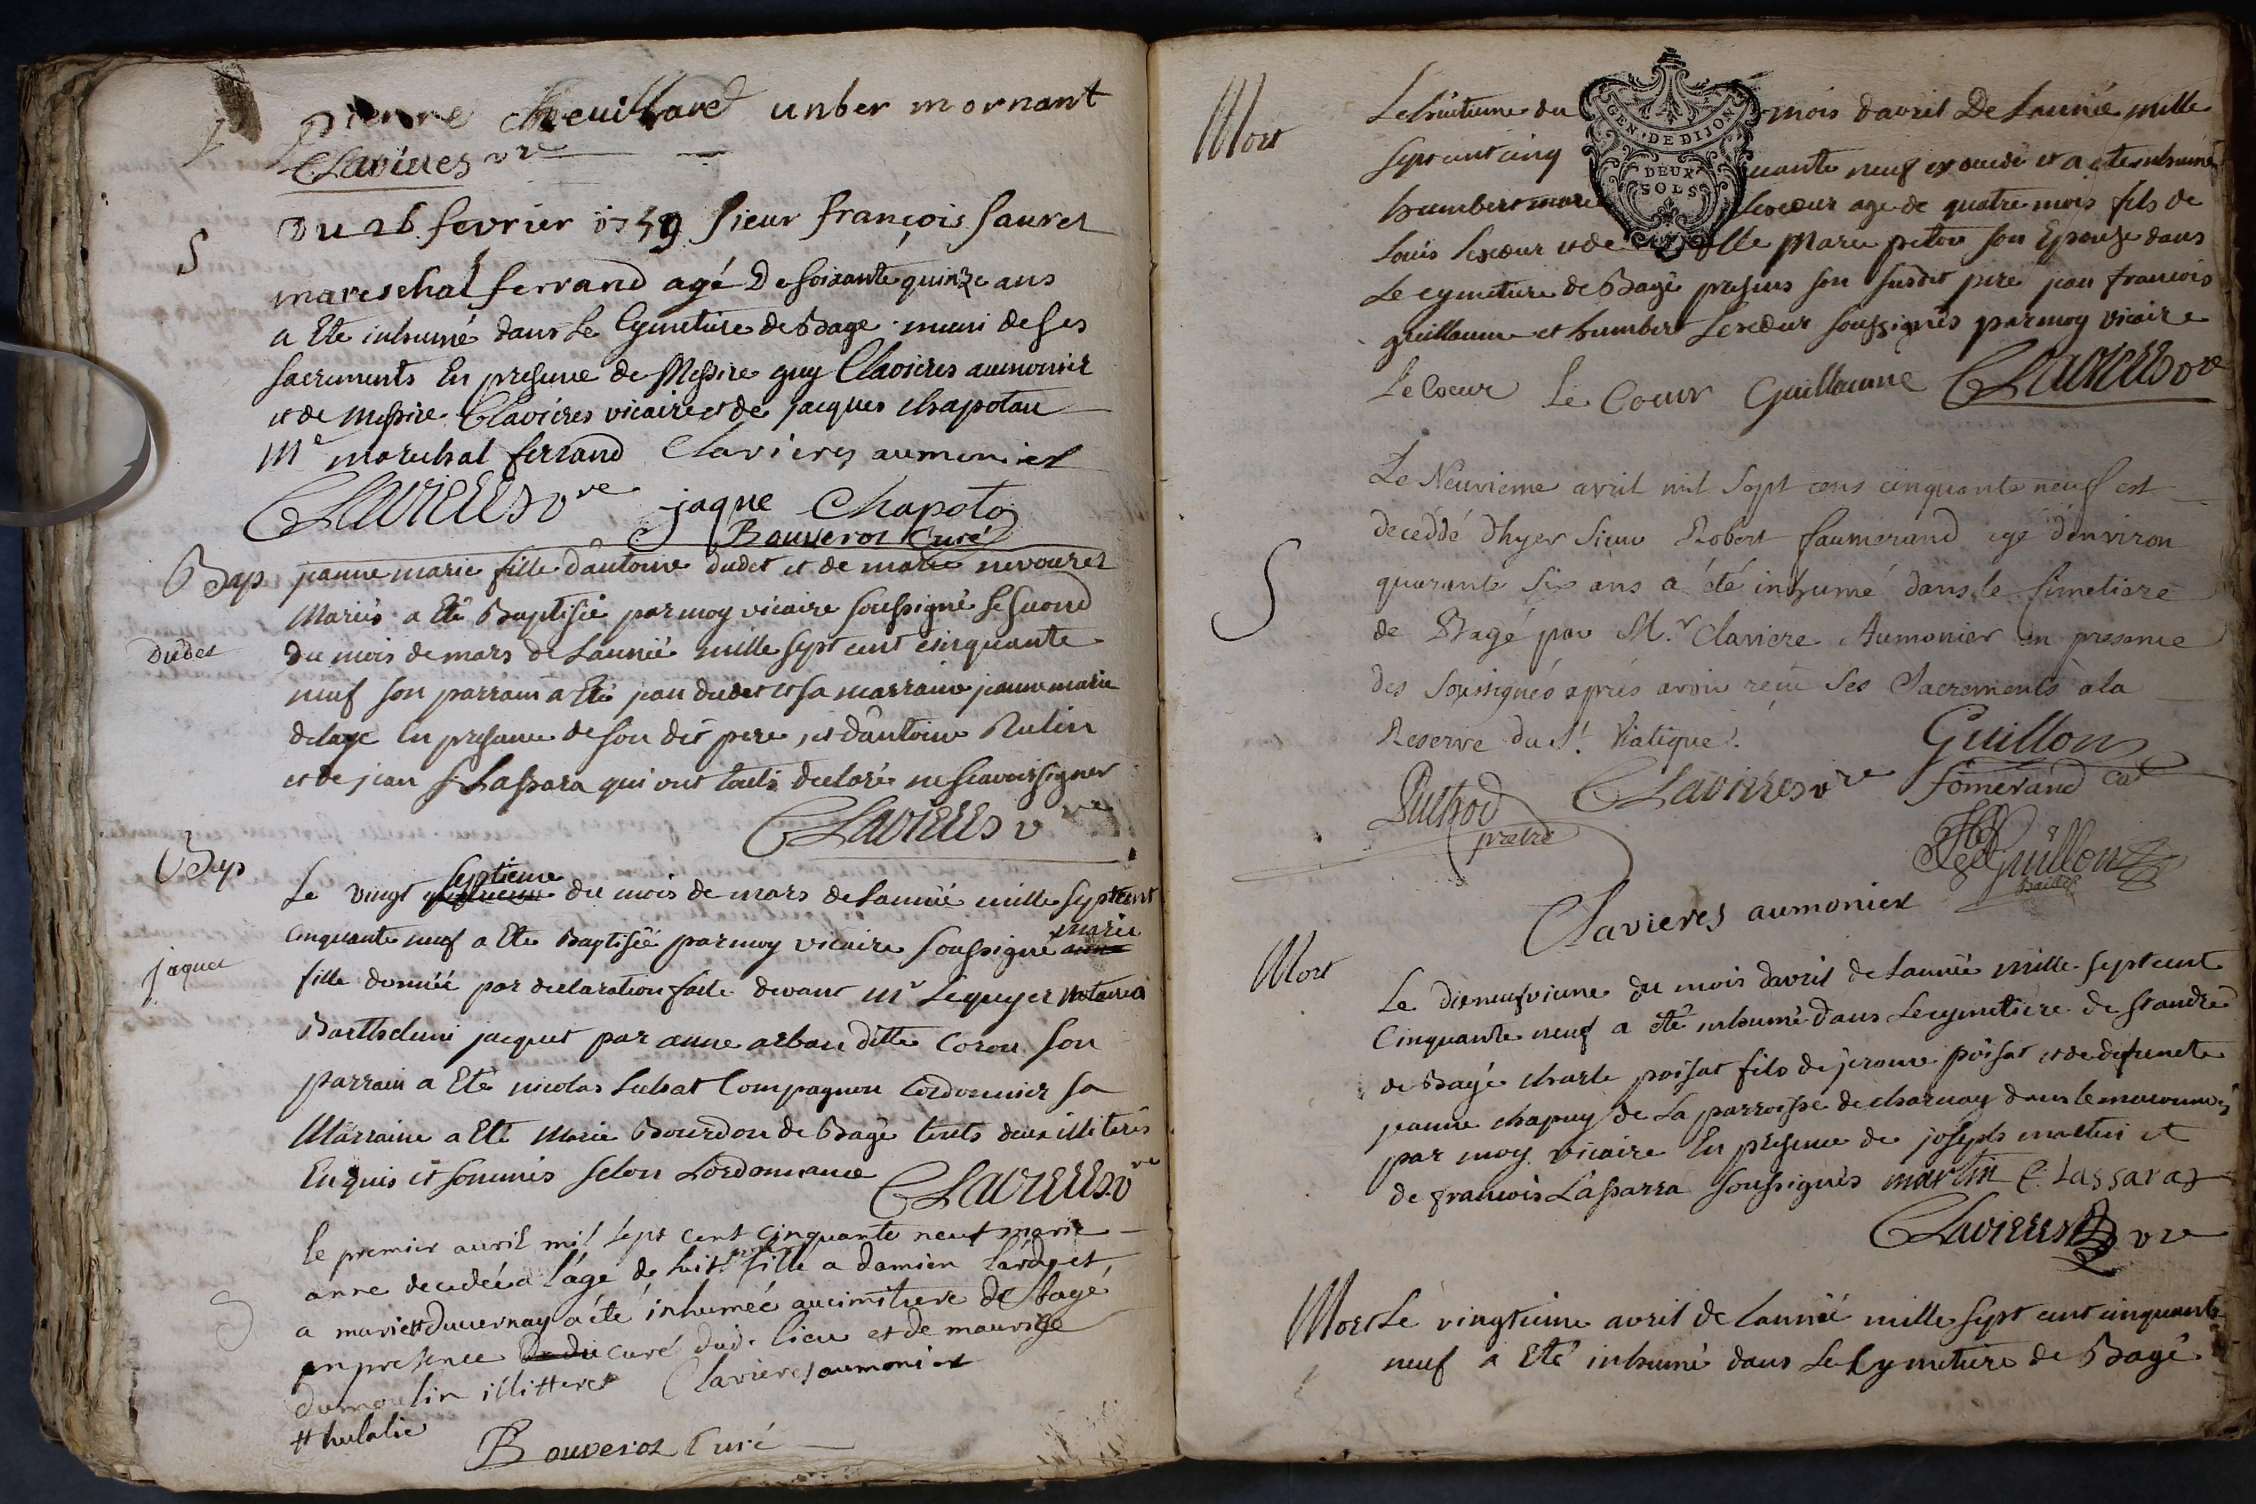 pierre unber mornant
Clavieres vre
S
Du 26 fevrier 1759 sieur françois sauret
mareschal ferrand agé De soixante quinze ans
a Eté inhumé dans Le Cymetiere de Bage muni de ses
sacrements En presence de Messire guy Clavieres aumonier
et de messire Clavieres vicaire et de jacques chapotau
Me marechal ferrand Clavieres aumonier
Clavieres vre jaque Chapoto
Bouveros Curé
Bap jeanne marie fille d'antoine dudet et de marie nevouret
Mariés a Eté Baptisée par moy vicaire soussigné le second
Dudet
du mois de mars de L'année mille sept cent cinquante
neuf son parrain a Eté jean dudet et sa marraine jeanne marie
delaye En presence de son dit pere, et d'antoine Rutin
et de jean Lassara qui ont touts declaré ne scavoir signer
Clavieres v re
Bap
septieme
Le vingt du mois de mars de L'année mille sept cent
marie
cinquante neuf a Eté Baptisée par moy vicaire soussigné
jaquet
fille donnée par declaration faite devant Mr Lequyer notaire a
Barthelemi jacquet par anne arban ditte Coron son
parrain a Eté nicolas Lubat Compagnon Cordonnier sa
Marraine a Eté Marie Bourdon de Bagé touts deux illiterés
Enquis et sommés selon L'ordonnance Clavieres v re
le premier avril mil sept cent cinquante neuf marie
anne decedée a l'áge de huit fille a damien Lardet et
a marie # Duvernay a été inhumée au cimetiere de Bagé
en presence curé dud. lieu et de maurise
dumoulin illitteres Clavieres aumonier
# hulalie
Bouveros Curé
Mort
Le huitieme du mois d'avril De L'année mille
GEN. DE DIJON
DEUX
SOLS
sept cent cinquante neuf est decedé et a eté inhumé
humbert Lecoeur agé de quatre mois fils de
Louis Lecoeur et de Marie peton son Epouse dans
Le cymetiere de Bagé presens son susdit pere jean francois
guillaume et humbert Lecoeur soussignés par moy vicaire
Le Coeur Le Coeur Guillaume Clavieres vre
S
Le Neuvieme avril mil Sept cens cinquante neuf est
deceddé d'hyer Sieur Robert faumerand agé d'environ
quarante Six ans a été inhumé dans le Simetiere
de Bagé par M.r Claviere Aumonier en presence
des Soussignés aprés avoir reçu Ses Sacrements à la
Reserve du St. Viatique.
Guillon
Puthod Clavieres vre fomerand
pretre
Guillon
Clavieres aumonier
Mort
Le dix neufvieme du mois d'avril de L'année mille sept cent
Cinquante neuf a été inhumé dans Le cymetiere de st andré
de Bagé charle poisat fils de jerome poisat et de defuncte
jeanne chapuy de La parroisse de charnay dans le maconnois
par moy vicaire En presence de joseph martin et
de francois Lassarra soussignés martin C. Lassara
Clavieres vre
Mort Le vingtieme avril de L'année mille sept cent cinquante
neuf a Eté inhumé dans Le Cymetiere de Bagé